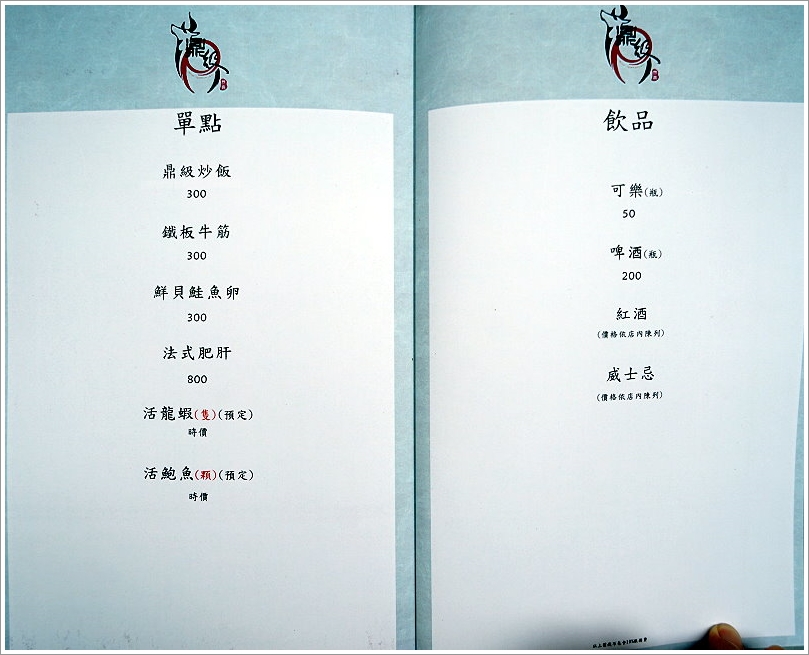 鼎級
單點
鼎級炒飯
300
鐵板牛筋
300
鮮貝鮭魚卵
300
法式肥肝
800
活龍蝦(隻)(預定)
時價
活鮑魚(顆)(預定)
時價
鼎級
飲品
可樂(瓶)
50
啤酒(瓶)
200
紅酒
(價格依店內陳列)
威士忌
(價格依店內陳列)